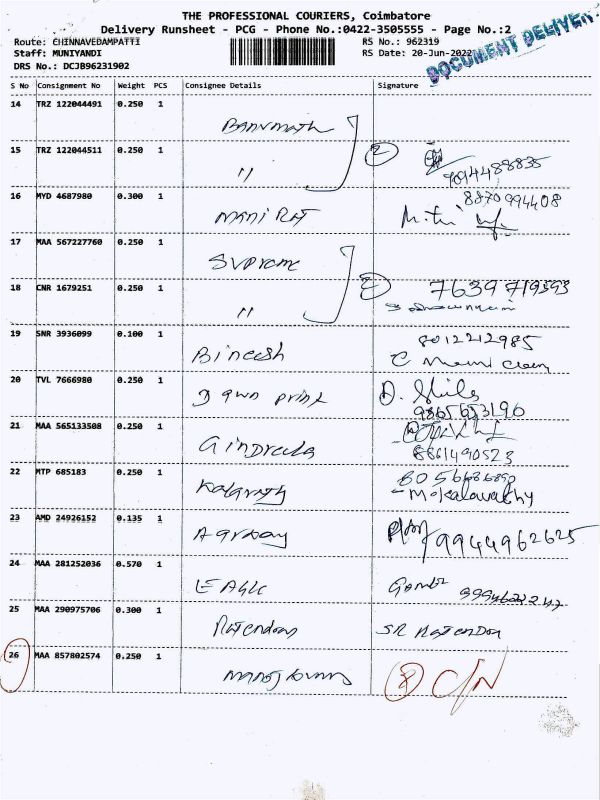 THE PROFESSIONAL COURIERS, Coimbatore
Delivery Runsheet - PCG - Phone No.:0422-3505555 - Page No.:2
Route: CHINNAVEDAMPATTI RS No.: 962319
Staff: MUNIYANDI RS Date: 20-Jun-2022
DRS No.: DCJB96231902
DOCUMENT DELIVERY
S No Consignment No Weight PCS Consignee Details Signature
14 TRZ 122044491 0.250 1
Banumath
15 TRZ 122044511 0.250 1
" 2 9094488835
16 MYD 4687980 0.300 1 8870994408
maniRaj
17 MAA 567227760 0.250 1
Supreme
18 CNR 1679251 0.250 1 7639719393
" 2
19 SNR 3936099 0.100 1 8012212985
Bineesh
20 TVL 7666980 0.250 1
Dawn print 9865653190
21 MAA 565133508 0.250 1
8861490523
22 MTP 685183 0.250 1
23 AMD 24926152 0.135 1
9944962625
24 MAA 281252036 0.570 1
EAGLE
25 MAA 290975706 0.300 1
26 MAA 857802574 0.250 1
C/N